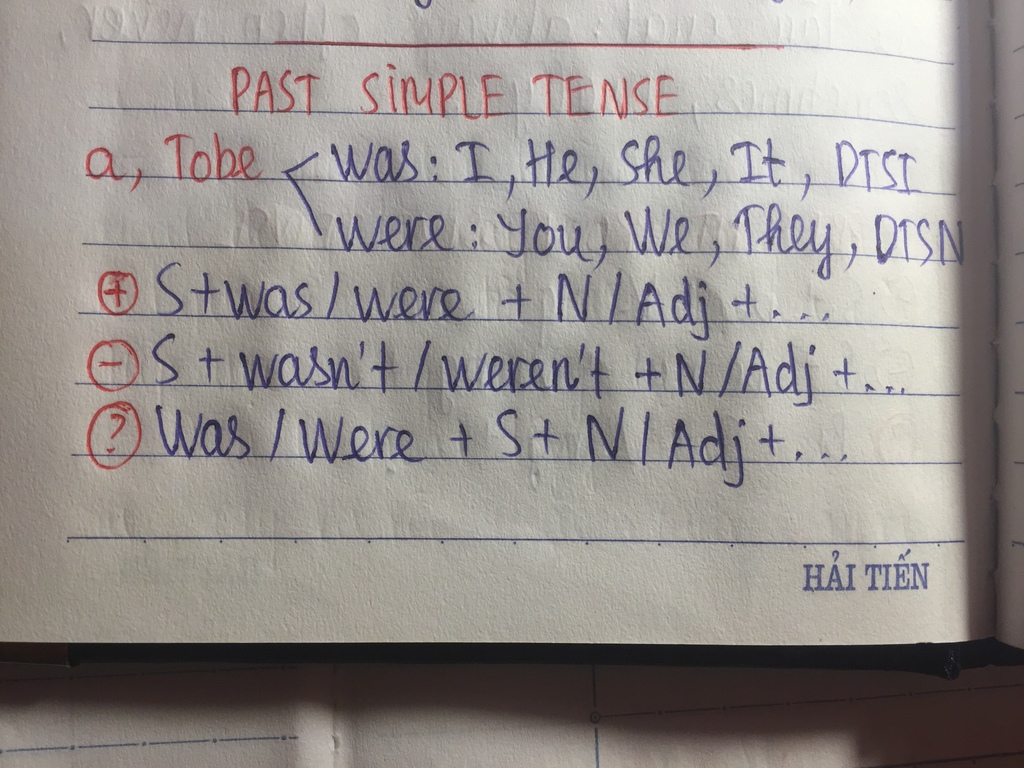 PAST SIMPLE TENSE
a, Tobe < was: I, He, She, It, DTSI
were: You, We, They, DTSN
+ S+was/were + N/Adj +...
- S + wasn't/weren't + N/Adj +...
? Was/Were + S+ N/Adj+...
HẢI TIẾN